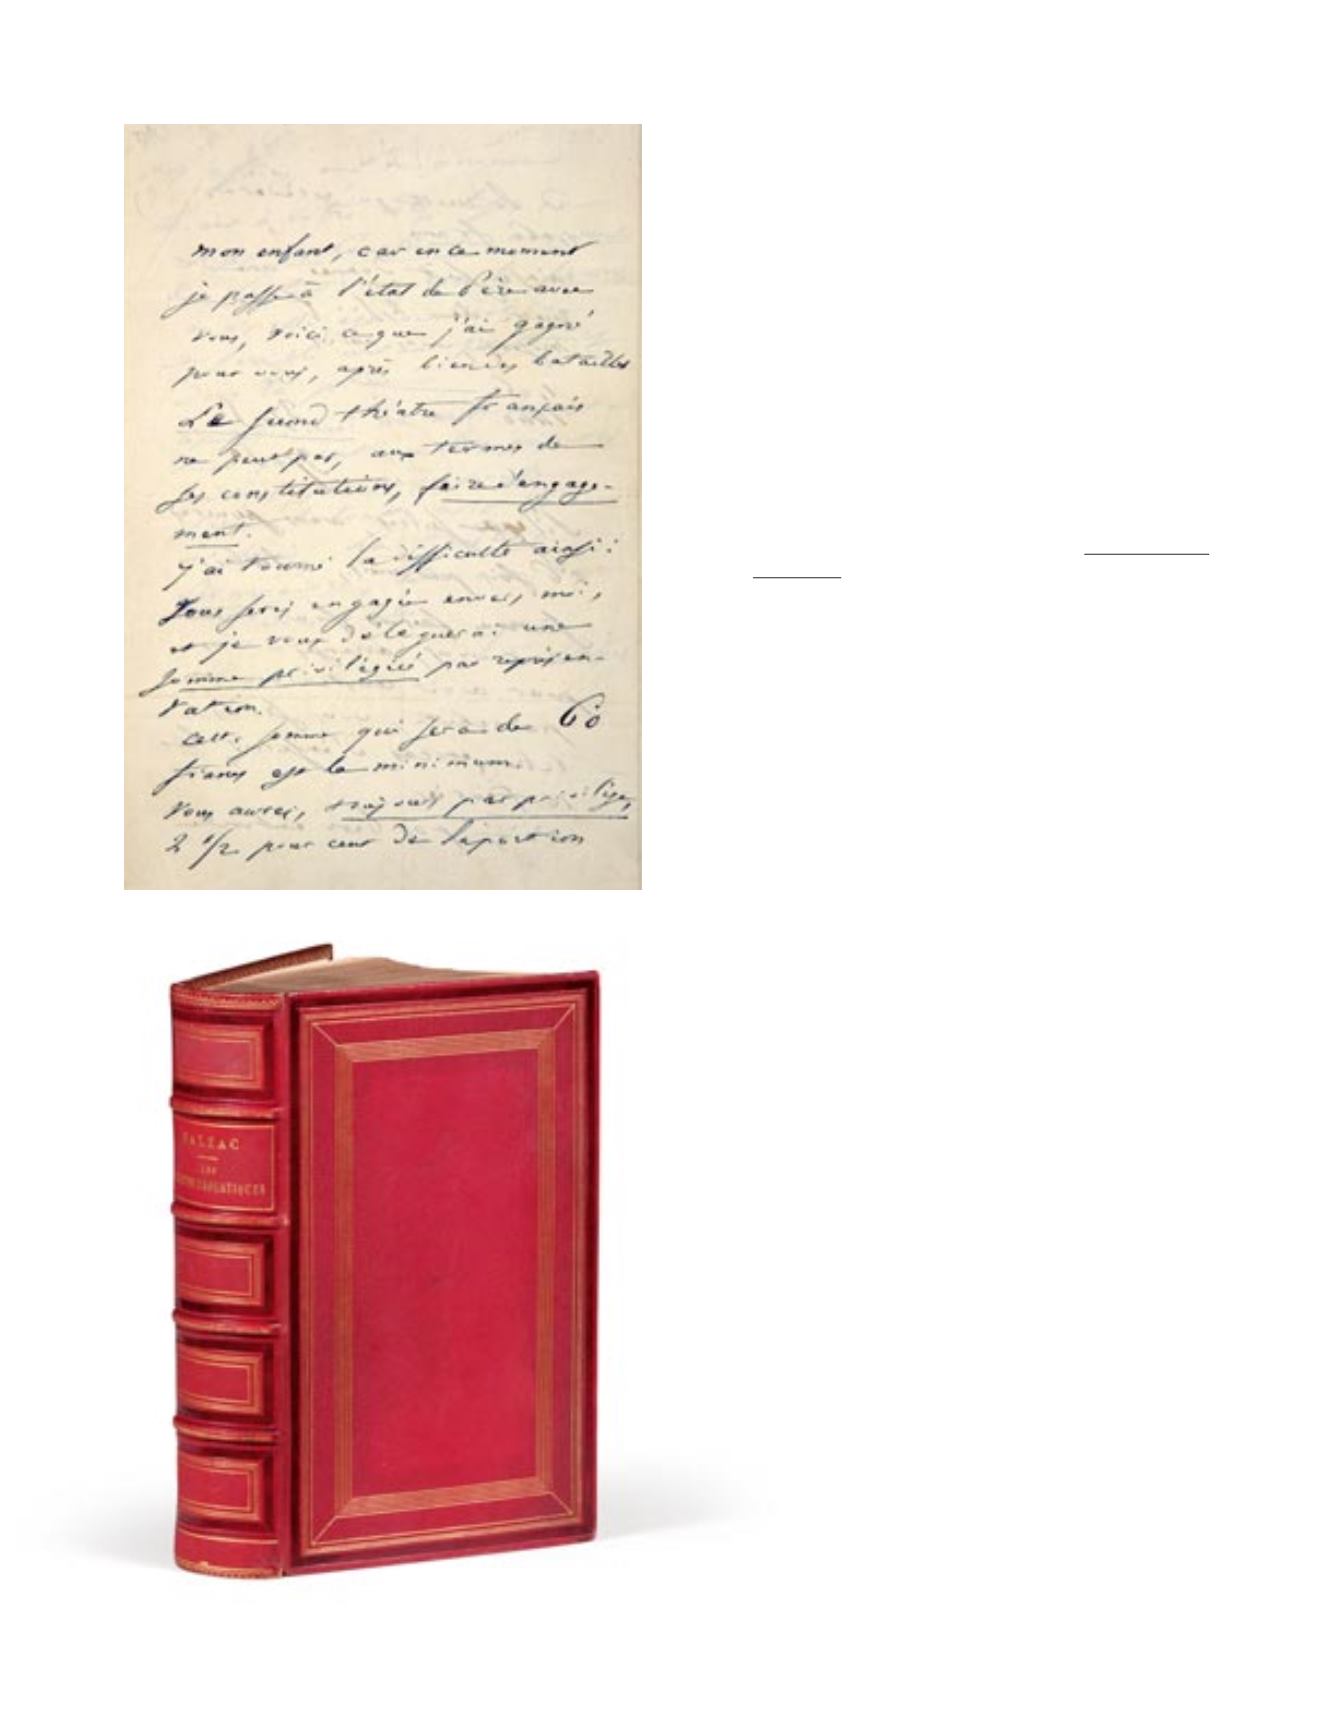 mon enfant, car en ce moment
je passe à l'état de Père avec
vous, voici ce que j'ai gagné
pour vous, après bien des batailles
Le second théâtre français
ne peut pas, aux termes de
ses constitutions, faire d'engage-
ment.
j'ai tourné la difficulté ainsi :
Vous serez engagée envers moi,
et je vous déléguerai une
somme privilégiée par représen-
tation.
cette somme qui sera de 60
francs est le minimum.
Vous aurez, toujours par privilège,
2 1/2 pour cent de la portion
BALZAC
LES